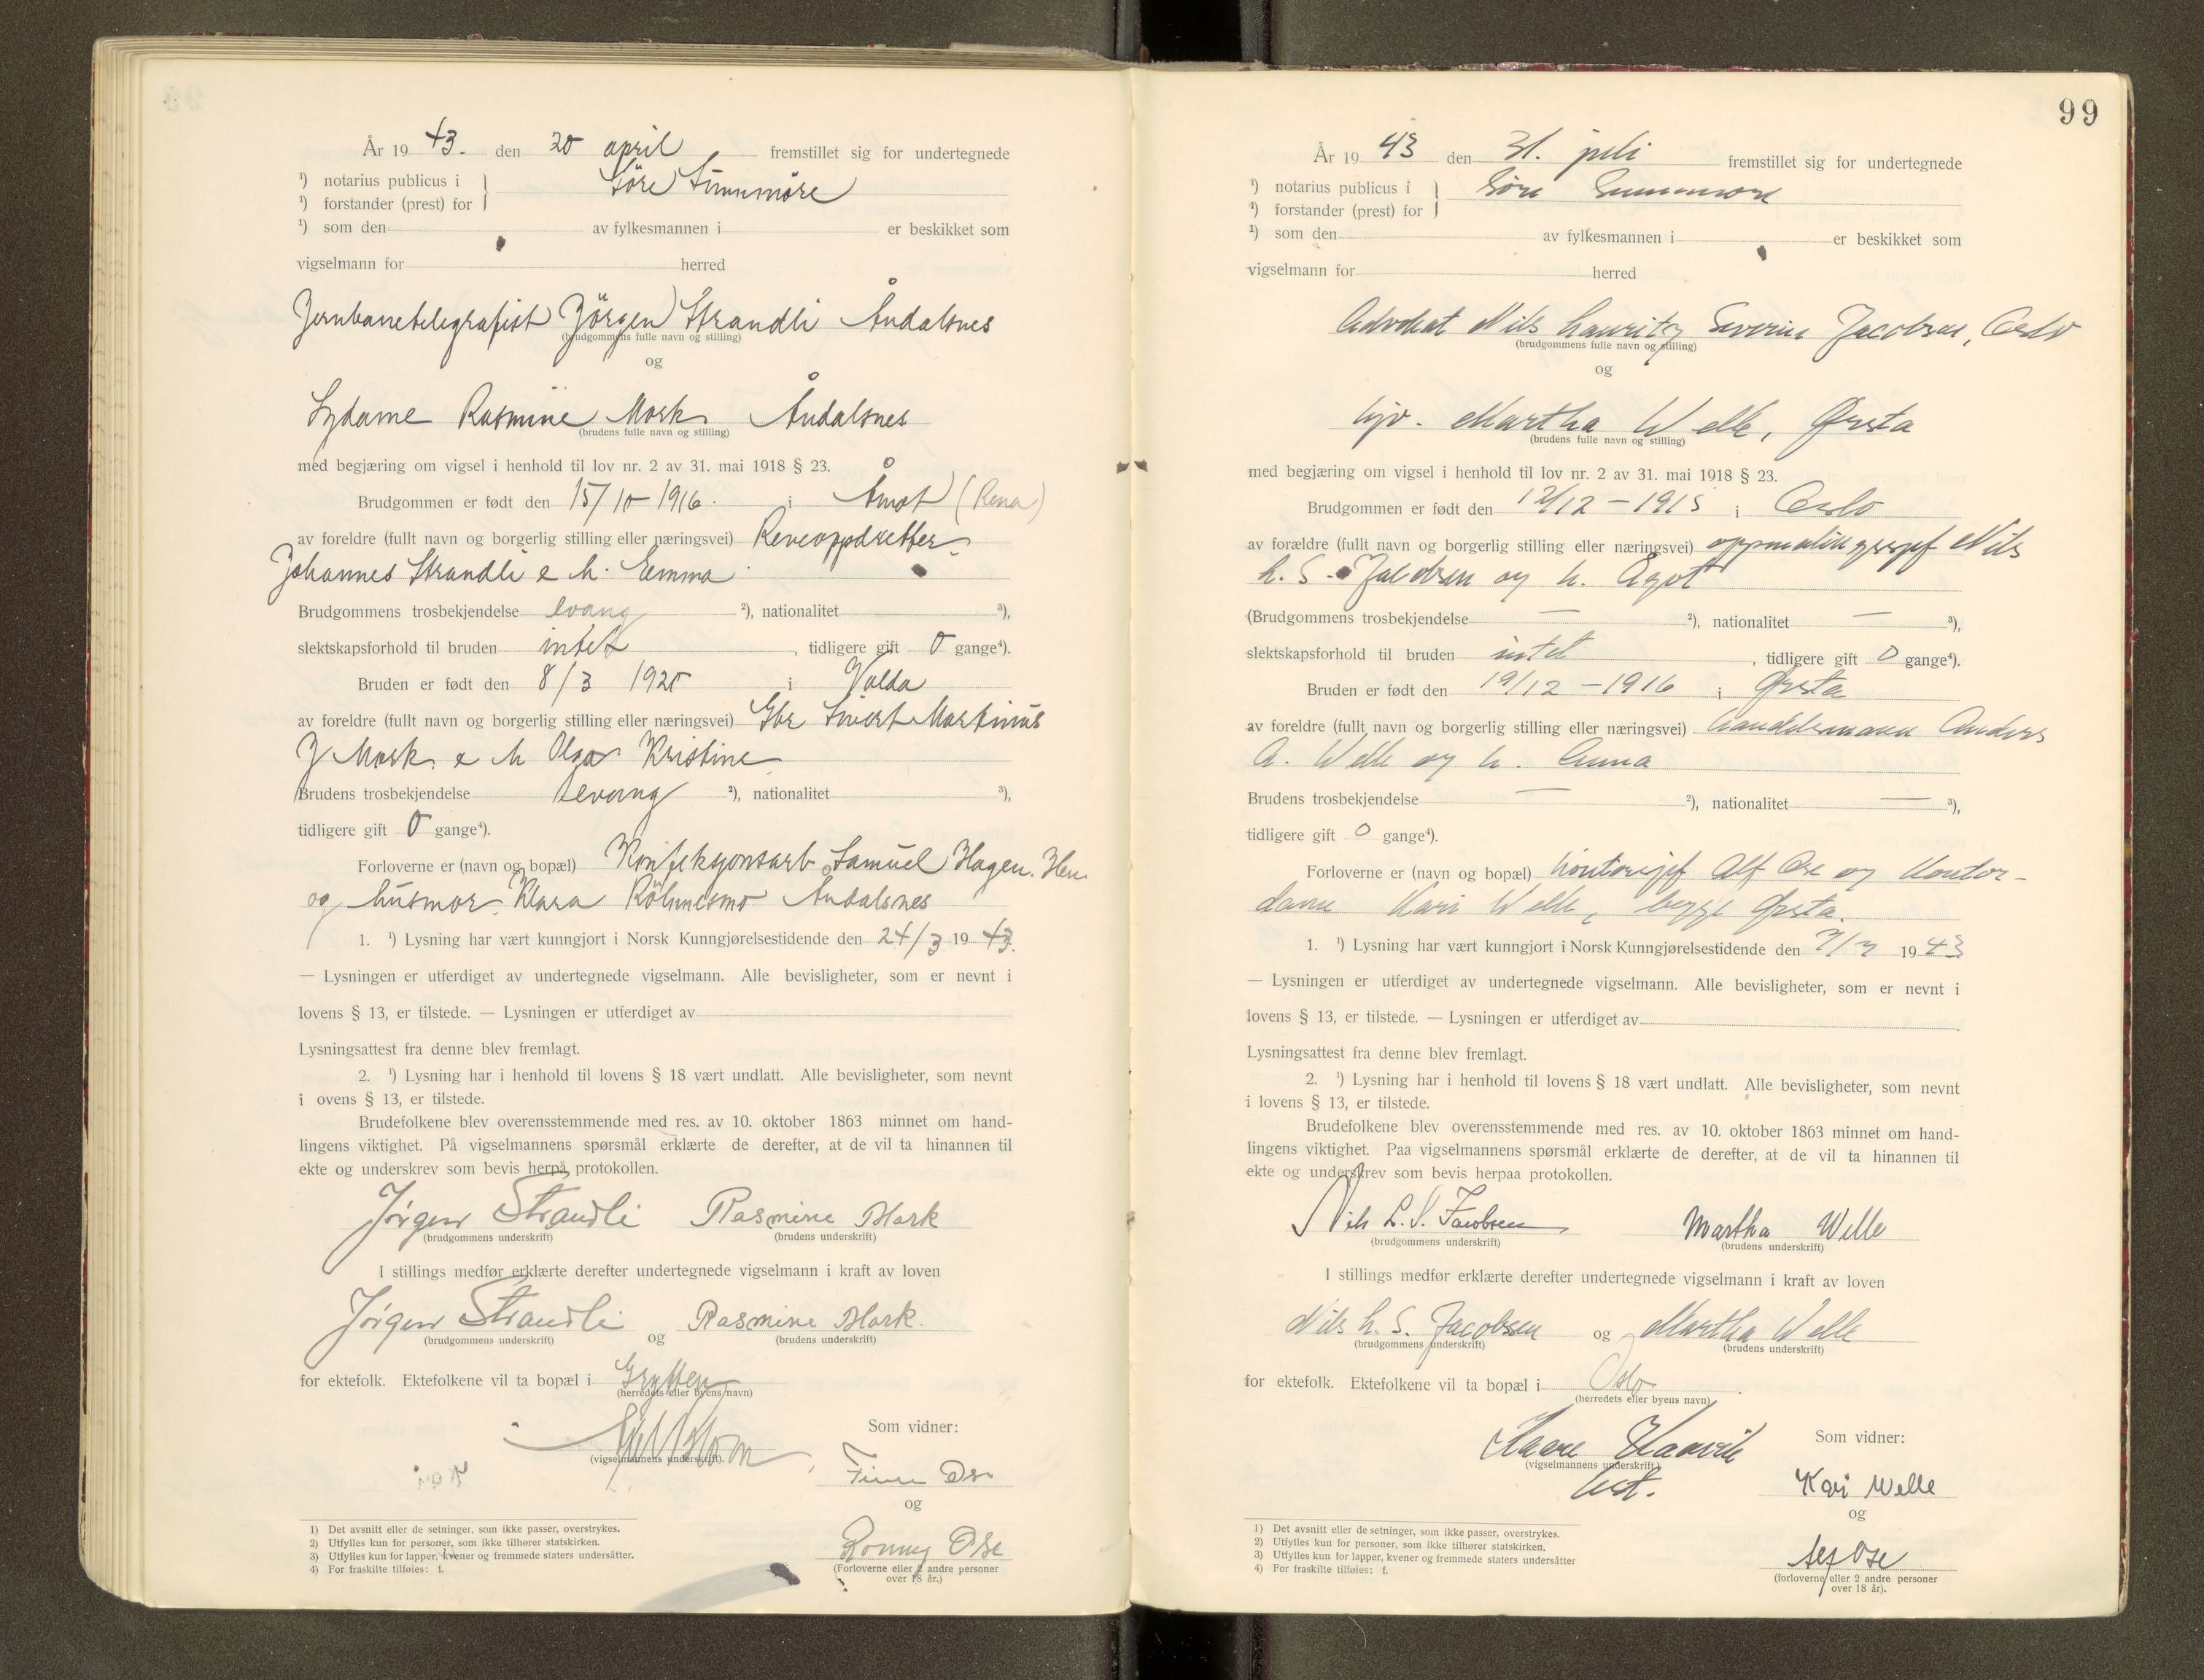 År 1943. den 20 april fremstillet sig for undertegnede
¹) notarius publicus i } Söre Sunnmöre
¹) forstander (prest) for
¹) som den av fylkesmannen i er beskikket som
vigselmann for herred
Jernbanetelegrafist Jörgen Strandli Åndalsnes
(brudgommens fulle navn og stilling)
og
Sydame Rasmine Mork Åndalsnes
(brudens fulle navn og stilling)
med begjæring om vigsel i henhold til lov nr. 2 av 31. mai 1918 § 23.
Brudgommen er født den 15/10-1916. i Åmot (Rena)
av foreldre (fullt navn og borgerlig stilling eller næringsvei) Reveoppdretter
Johannes Strandli e h. Emma
Brudgommens trosbekjendelse evang ²), nationalitet ³),
slektskapsforhold til bruden intet , tidligere gift 0 gange⁴).
Bruden er født den 8/3 1920 i Volda
av foreldre (fullt navn og borgerlig stilling eller næringsvei) Gbr Sivert Martinus
J Mork e h Olga Kristine
Brudens trosbekjendelse evang ²), nationalitet ³),
tidligere gift 0 gange⁴).
Forloverne er (navn og bopæl) Konfeksjonsarb. Samuel Hagen. Hen
og husmor Klara Åndalsnes
1. ¹) Lysning har vært kunngjort i Norsk Kunngjørelsestidende den 24/3 1943.
— Lysningen er utferdiget av undertegnede vigselmann. Alle bevisligheter, som er nevnt i
lovens § 13, er tilstede. — Lysningen er utferdiget av
Lysningsattest fra denne blev fremlagt.
2. ¹) Lysning har i henhold til lovens § 18 vært undlatt. Alle bevisligheter, som nevnt
i ovens § 13, er tilstede.
Brudefolkene blev overensstemmende med res. av 10. oktober 1863 minnet om hand-
lingens viktighet. På vigselmannens spørsmål erklærte de derefter, at de vil ta hinannen til
ekte og underskrev som bevis herpå protokollen.
Jörgen Strandli Rasmine Mork
(brudgommens underskrift) (brudens underskrift)
I stillings medfør erklærte derefter undertegnede vigselmann i kraft av loven
Jörgen Strandli og Rasmine Mork.
(brudgommens underskrift) (brudens underskrift)
for ektefolk. Ektefolkene vil ta bopæl i Grytten
(herredets eller byens navn)
Som vidner:
(vigselmannens underskrift).
Finn Ose
og
Ronny Ose
(Forloverne eller 2 andre personer
over 18 år.)
1) Det avsnitt eller de setninger, som ikke passer, overstrykes.
2) Utfylles kun for personer, som ikke tilhører statskirken.
3) Utfylles kun for lapper, kvener og fremmede staters undersåtter.
4) For fraskilte tilføies: f.
99
År 1943 den 31. juli fremstillet sig for undertegnede
¹) notarius publicus i } Söre Sunnmöre
¹) forstander (prest) for
¹) som den av fylkesmannen i er beskikket som
vigselmann for herred
Advokat Nils Lauritz Severin Jacobsen, Oslo
(brudgommens fulle navn og stilling)
og
hjv. Martha Welle, Ørsta
(brudens fulle navn og stilling)
med begjæring om vigsel i henhold til lov nr. 2 av 31. mai 1918 § 23.
Brudgommen er født den 12/12 - 1915 i Oslo
av forældre (fullt navn og borgerlig stilling eller næringsvei) oppmålingssjef Nils
L. S. Jacobsen og h. Ågot
(Brudgommens trosbekjendelse — ²), nationalitet — ³),
slektskapsforhold til bruden intet , tidligere gift 0 gange⁴).
Bruden er født den 19/12 - 1916 i Ørsta
av foreldre (fullt navn og borgerlig stilling eller næringsvei) handelsmann Anders
A. Welle og h. Anna
Brudens trosbekjendelse — ²), nationalitet — ³),
tidligere gift 0 gange⁴).
Forloverne er (navn og bopæl) Kontorsjef Alf Ose og Kontor-
dame Kari Welle, begge Ørsta.
1. ¹) Lysning har vært kunngjort i Norsk Kunngjørelsestidende den 7/7 1943
— Lysningen er utferdiget av undertegnede vigselmann. Alle bevisligheter, som er nevnt i
lovens § 13, er tilstede. — Lysningen er utferdiget av
Lysningsattest fra denne blev fremlagt.
2. ¹) Lysning har i henhold til lovens § 18 vært undlatt. Alle bevisligheter, som nevnt
i lovens § 13, er tilstede.
Brudefolkene blev overensstemmende med res. av 10. oktober 1863 minnet om hand-
lingens viktighet. Paa vigselmannens spørsmål erklærte de derefter, at de vil ta hinannen til
ekte og underskrev som bevis herpaa protokollen.
Nils L. S. Jacobsen Martha Welle
(brudgommens underskrift) (brudens underskrift)
I stillings medfør erklærte derefter undertegnede vigselmann i kraft av loven
Nils L. S. Jacobsen og Martha Welle
(brudgommens underskrift) (brudens underskrift)
for ektefolk. Ektefolkene vil ta bopæl i Oslo
(herredets eller byens navn)
Som vidner:
Kaare
(vigselmannens underskrift)
Kari Welle
og
Alf Ose
(forloverne eller 2 andre personer
over 18 år).
1) Det avsnitt eller de setninger, som ikke passer, overstrykes.
2) Utfylles kun for personer, som ikke tilhører statskirken.
3) Utfylles kun for lapper, kvener og fremmede staters undersåtter
4) For fraskilte tilføies: f.